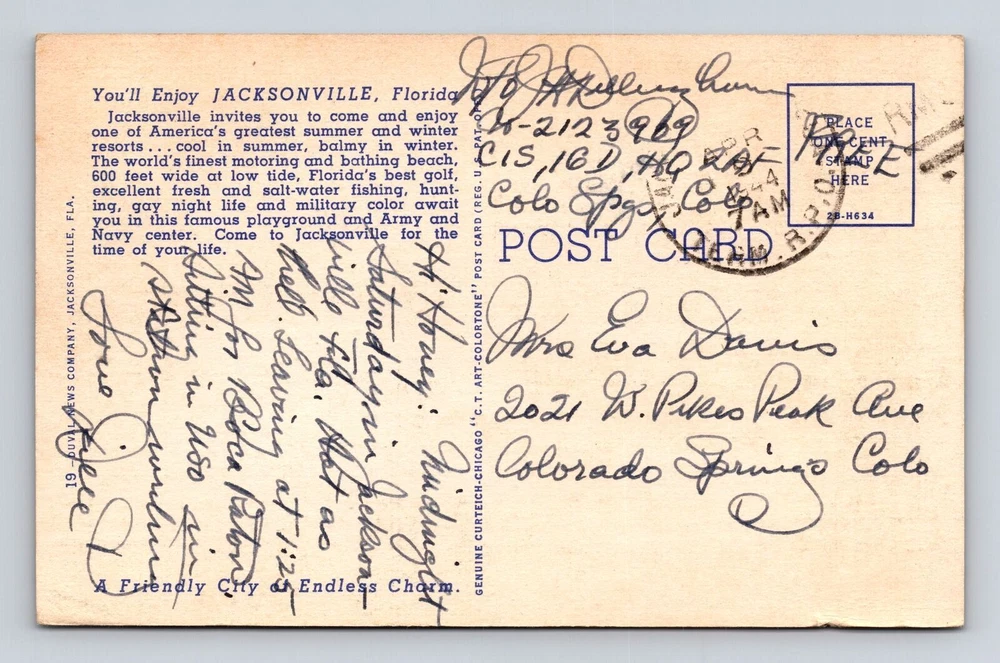 You'll Enjoy JACKSONVILLE, Florida
Jacksonville invites you to come and enjoy
one of America's greatest summer and winter
resorts ... cool in summer, balmy in winter.
The world's finest motoring and bathing beach,
600 feet wide at low tide, Florida's best golf,
excellent fresh and salt-water fishing, hunt-
ing, gay night life and military color await
you in this famous playground and Army and
Navy center. Come to Jacksonville for the
time of your life.
Hi Honey: Midnight
Saturday in Jackson-
ville Fla. Hot as
hell. Leaving at 1:25
AM for Boca Raton.
Sitting in USO in
station
Love
A Friendly City of Endless Charm.
19-DUVAL NEWS COMPANY, JACKSONVILLE, FLA.
GENUINE CURTEICH-CHICAGO "C.T. ART-COLORTONE" POST CARD (REG. U.S. PAT. OFF.)
Dillingham
W-2123969
CIS, 16 D, HQ 2AF
Colo Spgs, Colo
PLACE
ONE CENT
STAMP
HERE
2B-H634
FREE
APR
1944
AM
R.P.O.
POST CARD
Mrs Eva Davis
2021 W. Pikes Peak Ave
Colorado Springs Colo